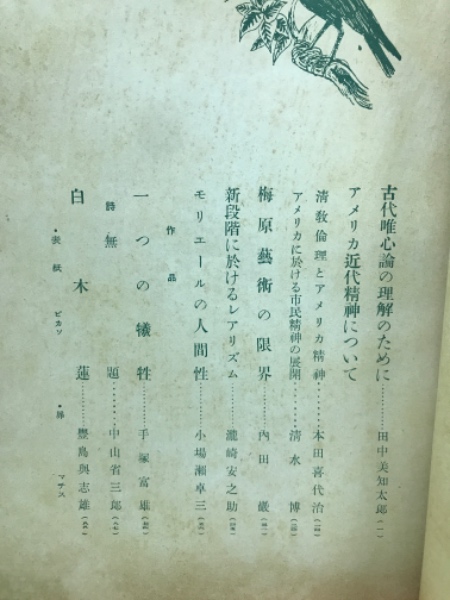 古代唯心論の理解のために…………田中美知太郎(一)
アメリカ近代精神について
清敎倫理とアメリカ精神………本田喜代治
アメリカに於ける市民精神の展開………清水 博
梅原藝術の限界………內田 巖
新段階に於けるレアリズム………瀧崎安之助
モリエールの人間性………小場瀬卓三
作品
一つの犧牲………手塚富雄
詩 無題………中山省三郎
白木蓮………豐島與志雄
・表紙 ピカソ ・扉 マチス